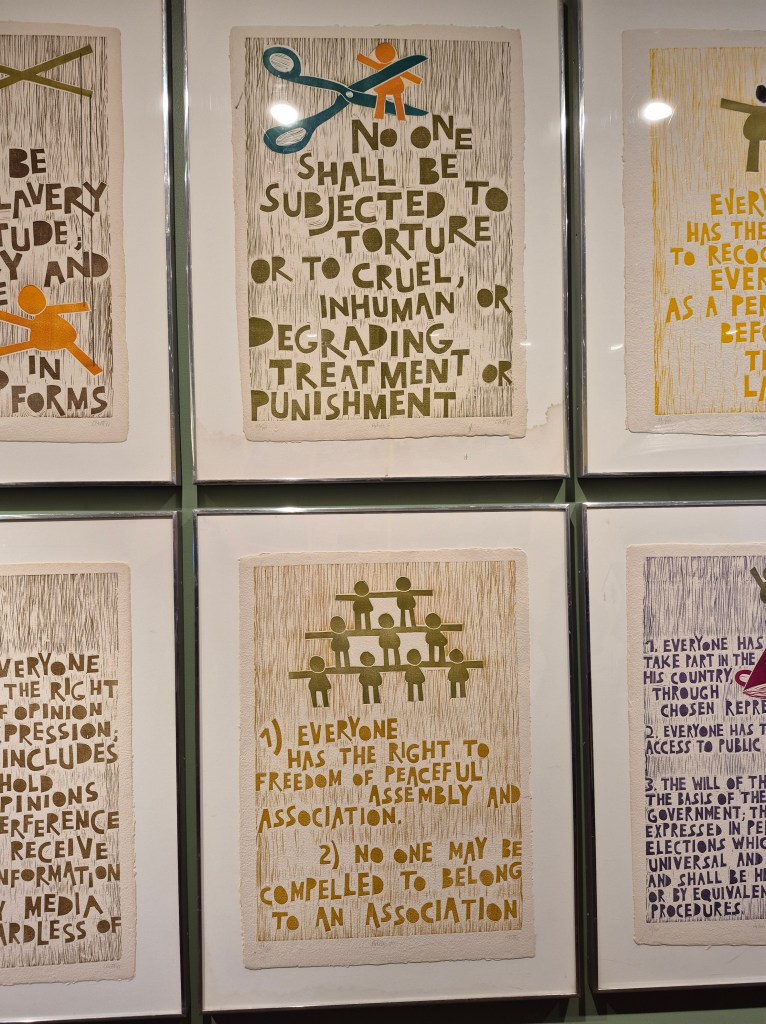 BE
LAVERY
TUDE;
Y AND
E
IN
FORMS
NO ONE
SHALL BE
SUBJECTED TO
TORTURE
OR TO CRUEL,
INHUMAN OR
DEGRADING
TREATMENT OR
PUNISHMENT
EVERY
HAS THE
TO RECOG
EVER
AS A PER
BEFO
T
LA
VERYONE
THE RIGHT
F OPINION
PRESSION;
INCLUDES
HOLD
PINIONS
ERFERENCE
RECEIVE
NFORMATION
Y MEDIA
ARDLESS OF
1) EVERYONE
HAS THE RIGHT TO
FREEDOM OF PEACEFUL
ASSEMBLY AND
ASSOCIATION.
2) NO ONE MAY BE
COMPELLED TO BELONG
TO AN ASSOCIATION
1. EVERYONE HAS
TAKE PART IN THE
HIS COUNTRY,
THROUGH
CHOSEN REPRE
2. EVERYONE HAS T
ACCESS TO PUBLIC
3. THE WILL OF TH
THE BASIS OF THE
GOVERNMENT; TH
EXPRESSED IN PE
ELECTIONS WHIC
UNIVERSAL AND
AND SHALL BE HE
OR BY EQUIVALEN
PROCEDURES.